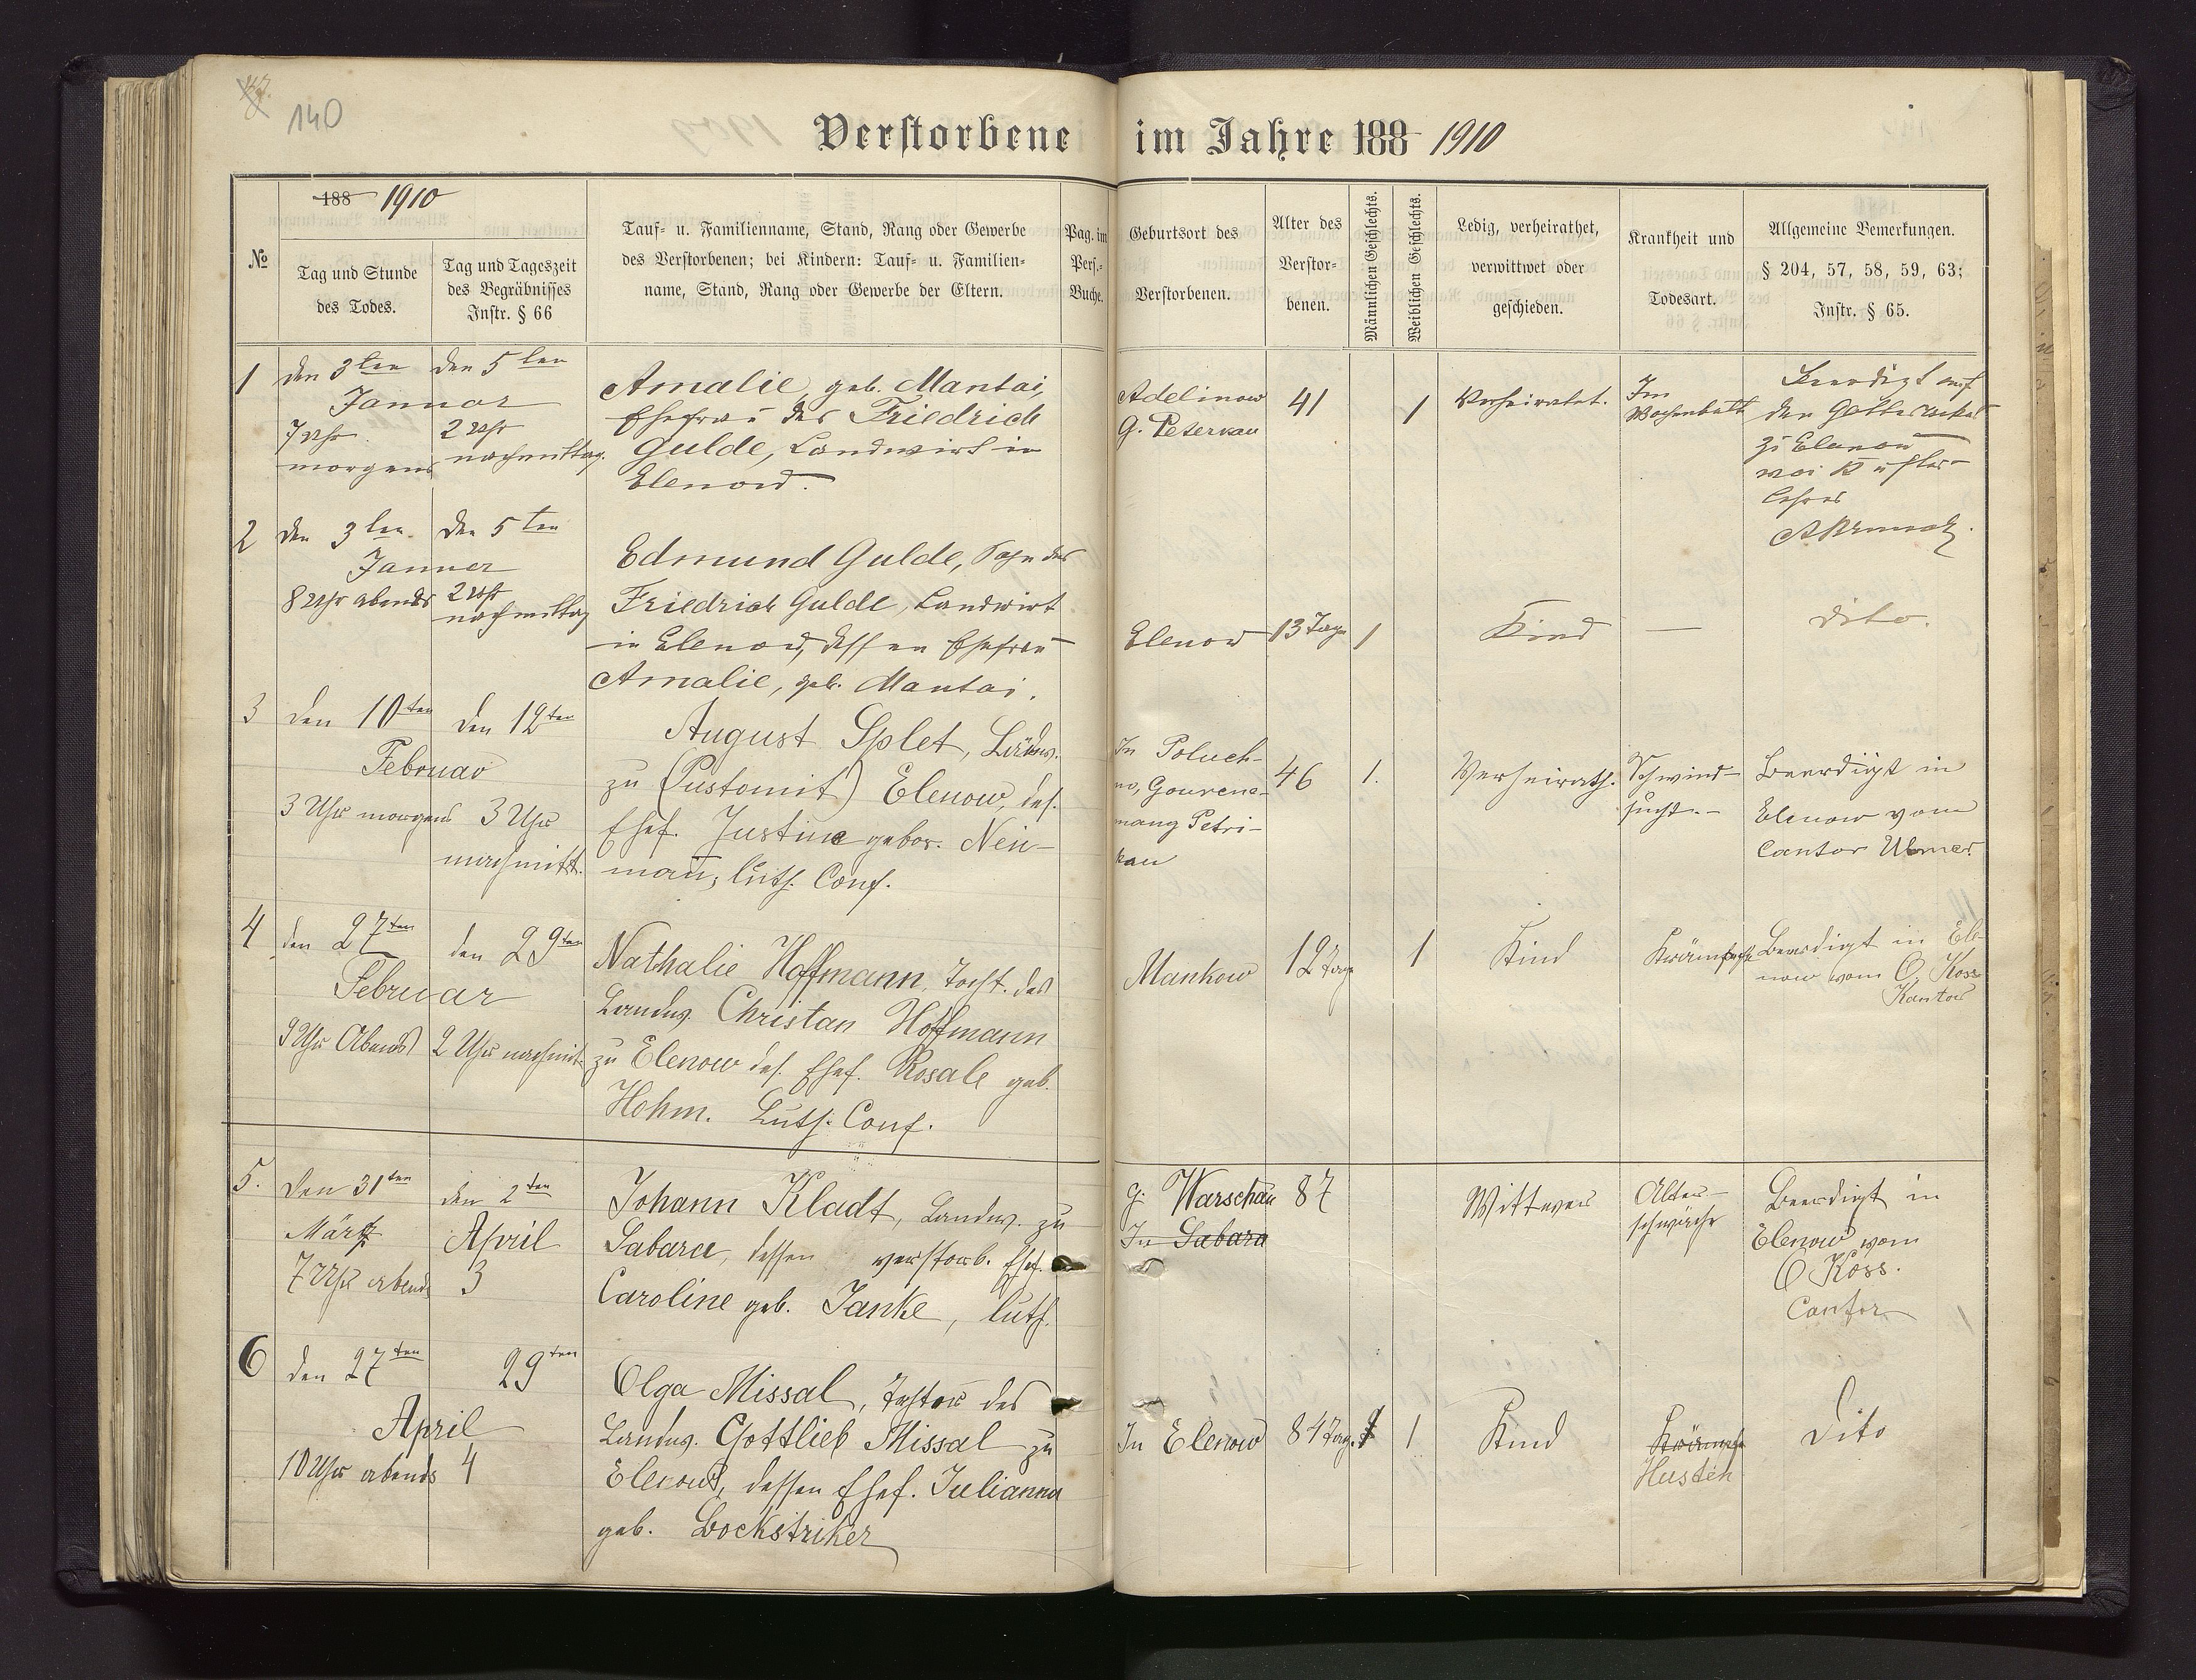 140
Verstorbene im Jahre 188 1910
№
188 1910
Tag und Stunde
des Todes.
Tag und Tageszeit
des Begräbnisses
Instr. § 66
Tauf- u. Familienname, Stand, Rang oder Gewerbe
des Verstorbenen; bei Kindern: Tauf- u. Familien-
name, Stand, Rang oder Gewerbe der Eltern.
Pag. im
Pers.-
Buche.
Geburtsort des
Verstorbenen.
Alter des
Verstor-
benen.
Männlichen Geschlechts.
Weiblichen Geschlechts.
Ledig, verheirathet,
verwittwet oder
geschieden.
Krankheit und
Todesart.
Allgemeine Bemerkungen.
§ 204, 57, 58, 59, 63;
Instr. § 65.
1
den 3ten
Januar
7 Uhr
morgens
den 5ten
2 Uhr
nachmittag.
Amalie, geb. Mantai,
Ehefrau des Friedrich
Gulde, Landwirt in
Elenow.
Adelinow
G. Peterkau
41
1
Verheiratet.
Im
Wochenbett
Beerdigt auf
den Gottesacker
zu Elenow
Küster-
lehrer
2
den 3ten
Januar
8 Uhr abends
den 5ten
2 Uhr
nachmittag
Edmund Gulde, Sohn des
Friedrich Gulde, Landwirt
in Elenow, dessen Ehefrau
Amalie, geb. Mantai.
Elenow
13 Tage
1
Kind
—
dito.
3
den 10ten
Februar
3 Uhr morgens
den 12ten
3 Uhr
nachmitt.
August Splet, Landw.
zu (Pustomit) Elenow, des.
Ehef. Justine gebor. Neu-
man, luth. Conf.
In Poluch-
no, Gouverne-
mang Petri-
kau
46
1.
Verheirath.
Schwind-
sucht.-
Beerdigt in
Elenow vom
Cantor Ulmer
4
den 27ten
Februar
9 Uhr Abends
den 29ten
2 Uhr nachmit.
Nathalie Hoffmann, Tocht. des
Landw. Christan Hoffmann
zu Elenow des. Ehef. Rosale geb.
Hohm. Luth. Conf.
Mankow
12 Tage
1
Kind
Krämpfe
Beerdigt in Ele-
now vom O. Koss
Kantor
5.
Den 31ten
Märtz
7 Uhr abends
den 2ten
April
3
Johann Kladt, Landw. zu
Sabara, dessen verstorb. Ehef.
Caroline geb. Janke, luth.
G. Warschau
In Sabara
87
Wittwer
Alter-
schwäche
Beerdigt in
Elenow vom
O Koss.
Cantor
6
den 27ten
April
10 Uhr abends
29ten
4
Olga Missal, Tochter des
Landw. Gottlieb Missal zu
Elenow, dessen Ehef. Julianna
geb. Bockstriker
In Elenow
84 Tag.
1
Kind
Krämpfe
Husten
Dito